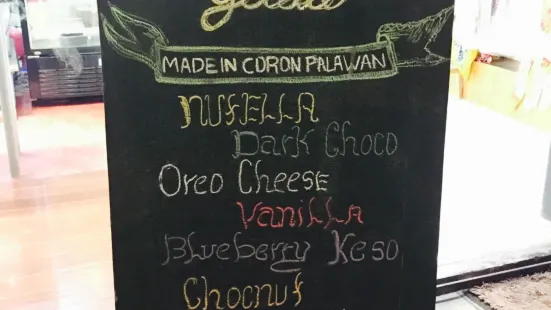 MADE IN CORON PALAWAN
NUtELLA
Dark Choco
Oreo Cheese
Vanilla
Blueberry Keso
Chocnut